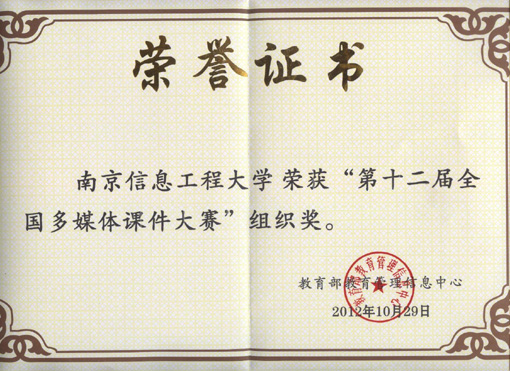 荣誉证书
南京信息工程大学 荣获“第十二届全
国多媒体课件大赛”组织奖。
教育部教育管理信息中心
2012年10月29日